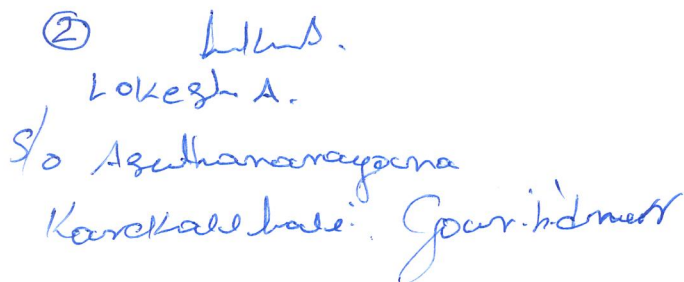 ②
Lokesh A.
S/o Asuthanarayana
Karekallhalli. Gowribidnur